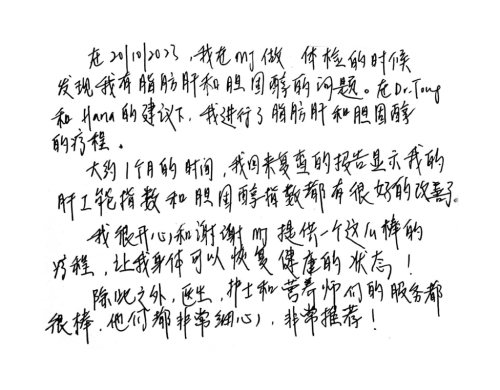 在20/10/2023，我在MJ做 体检的时候
发现我有脂肪肝和胆固醇的问题。在Dr.Tong
和Hana的建议下，我进行了脂肪肝和胆固醇
的疗程。
大约1个月的时间，我回来复查的报告显示我的
肝功能指数和胆固醇指数都有很好的改善了。
我很开心和谢谢MJ提供一个这么棒的
疗程，让我身体可以恢复健康的状态！
除此之外，医生，护士和营养师们的服务都
很棒，他们都非常细心，非常推荐！